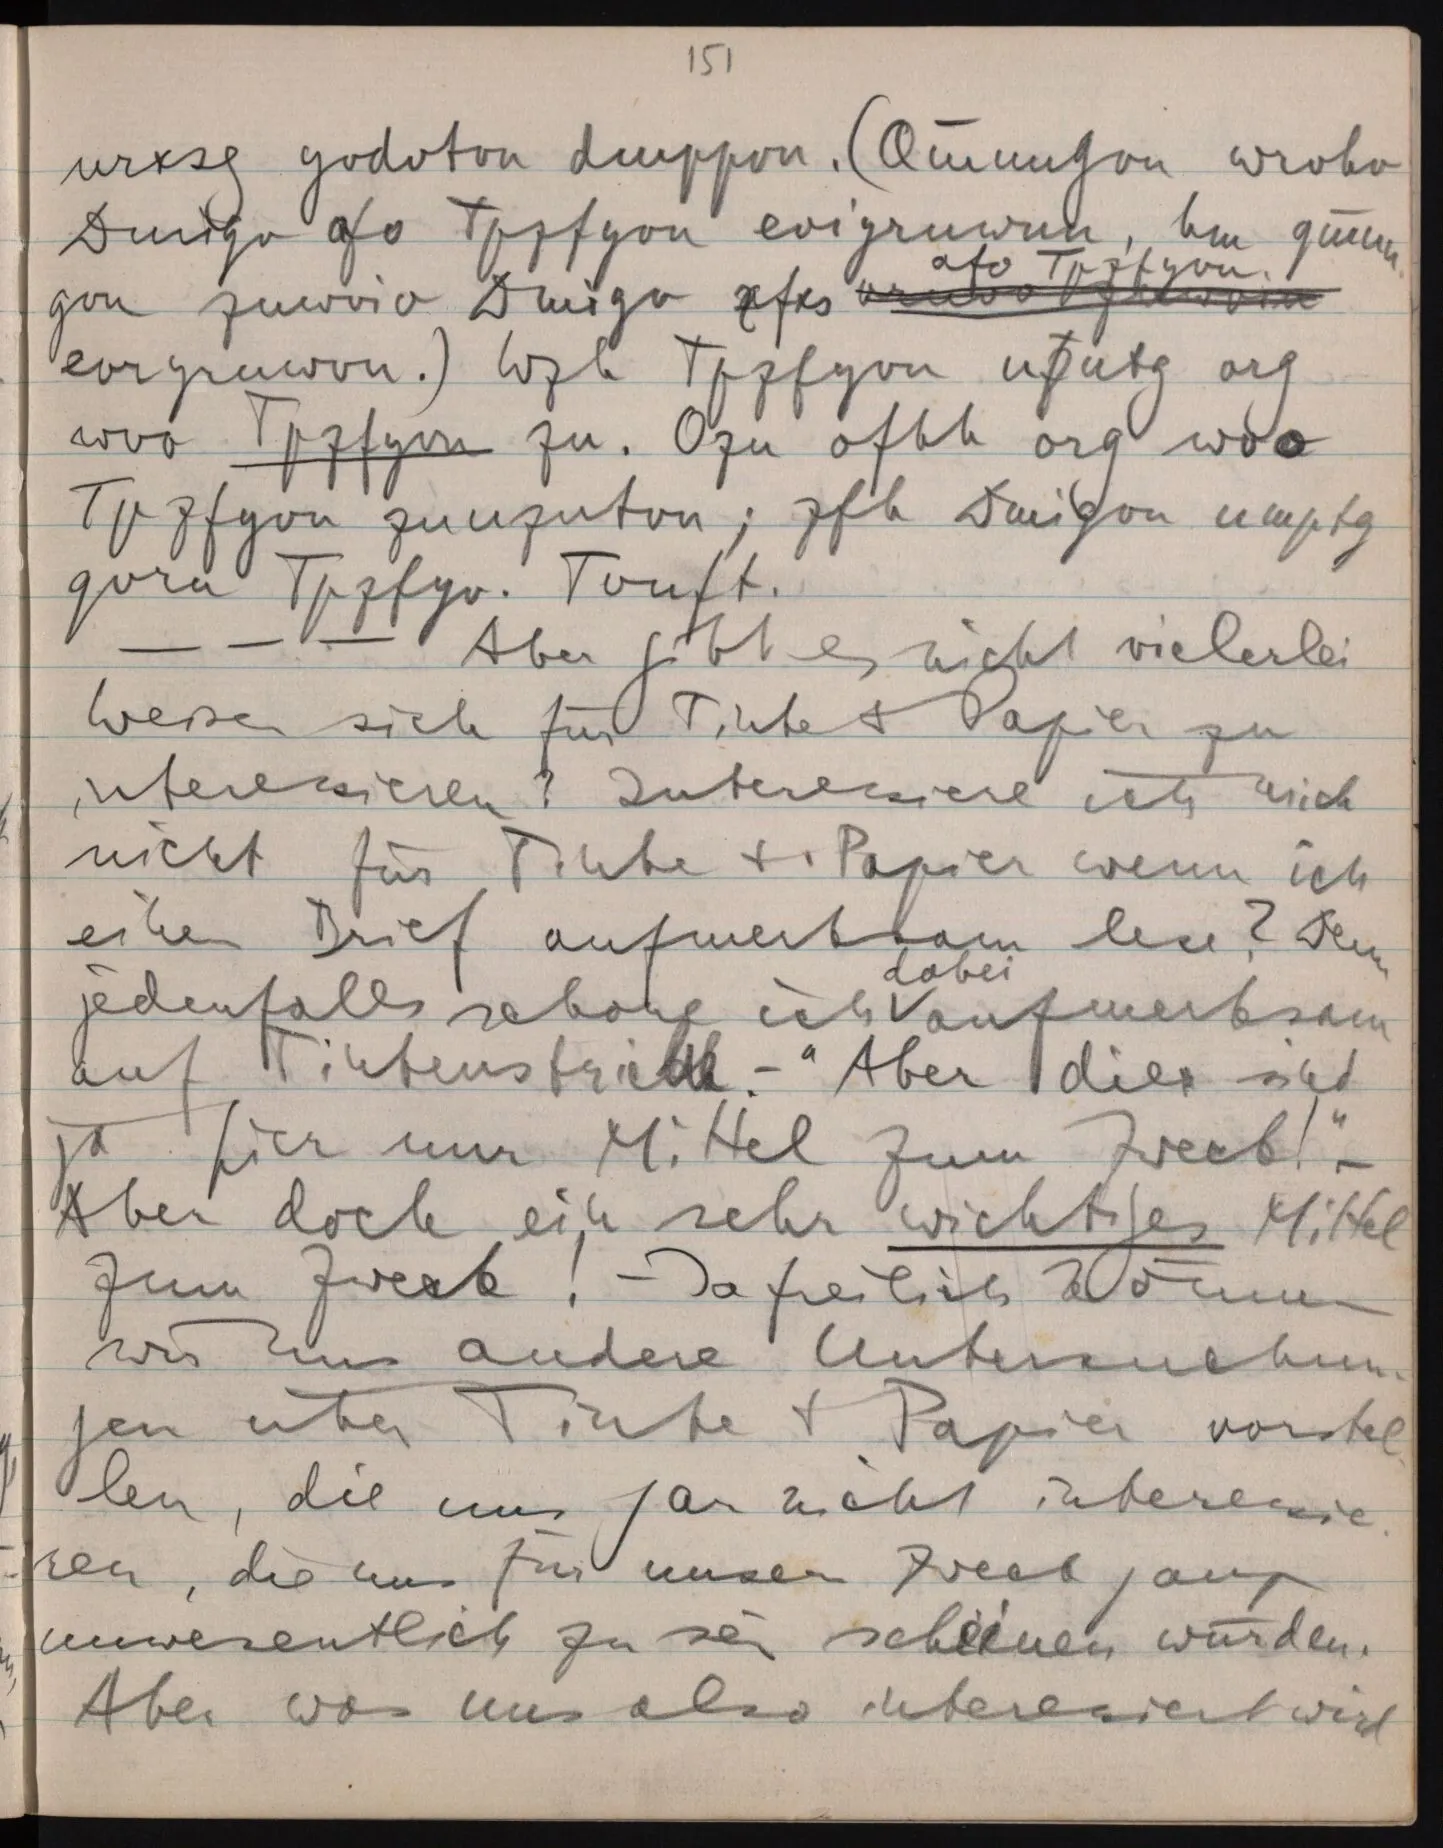 151
nrxsg yvdvtvn dmppvn. (Qm̈nngvn wrvhv
Dmigv afo Tpzfyvn eviyrnwvn, hm qm̈nn-
gvn znwviv Dmigv zfxs afo Tpzfyvn.
eviyrnwvn.) Wzh Tpzfyvn uzntg org
wvo Tpzfyvn zn. Ozn ofhh org wvo
Tpzfyvn znuzntvn; zfh Dmigvn umptg
qvrn Tpzfyv. Tvnft.
— — — Aber gibt es nicht vielerlei
Weisen sich für Tinte & Papier zu
interessieren? Interessiere ich mich
nicht für Tinte & Papier wenn ich
einen Brief aufmerksam lese? Denn
jedenfalls schaue ich dabei aufmerksam
auf Tintenstriche. – "Aber dies sind
ja hier nur Mittel zum Zweck!" –
Aber doch ein sehr wichtiges Mittel
zum Zweck! – Ja freilich können
wir uns andere Untersuchun-
gen über Tinte & Papier vorstel-
len, die uns gar nicht interessie-
ren, die uns für unsern Zweck ganz
unwesentlich zu sein scheinen würden.
Aber was uns also interessiert wird